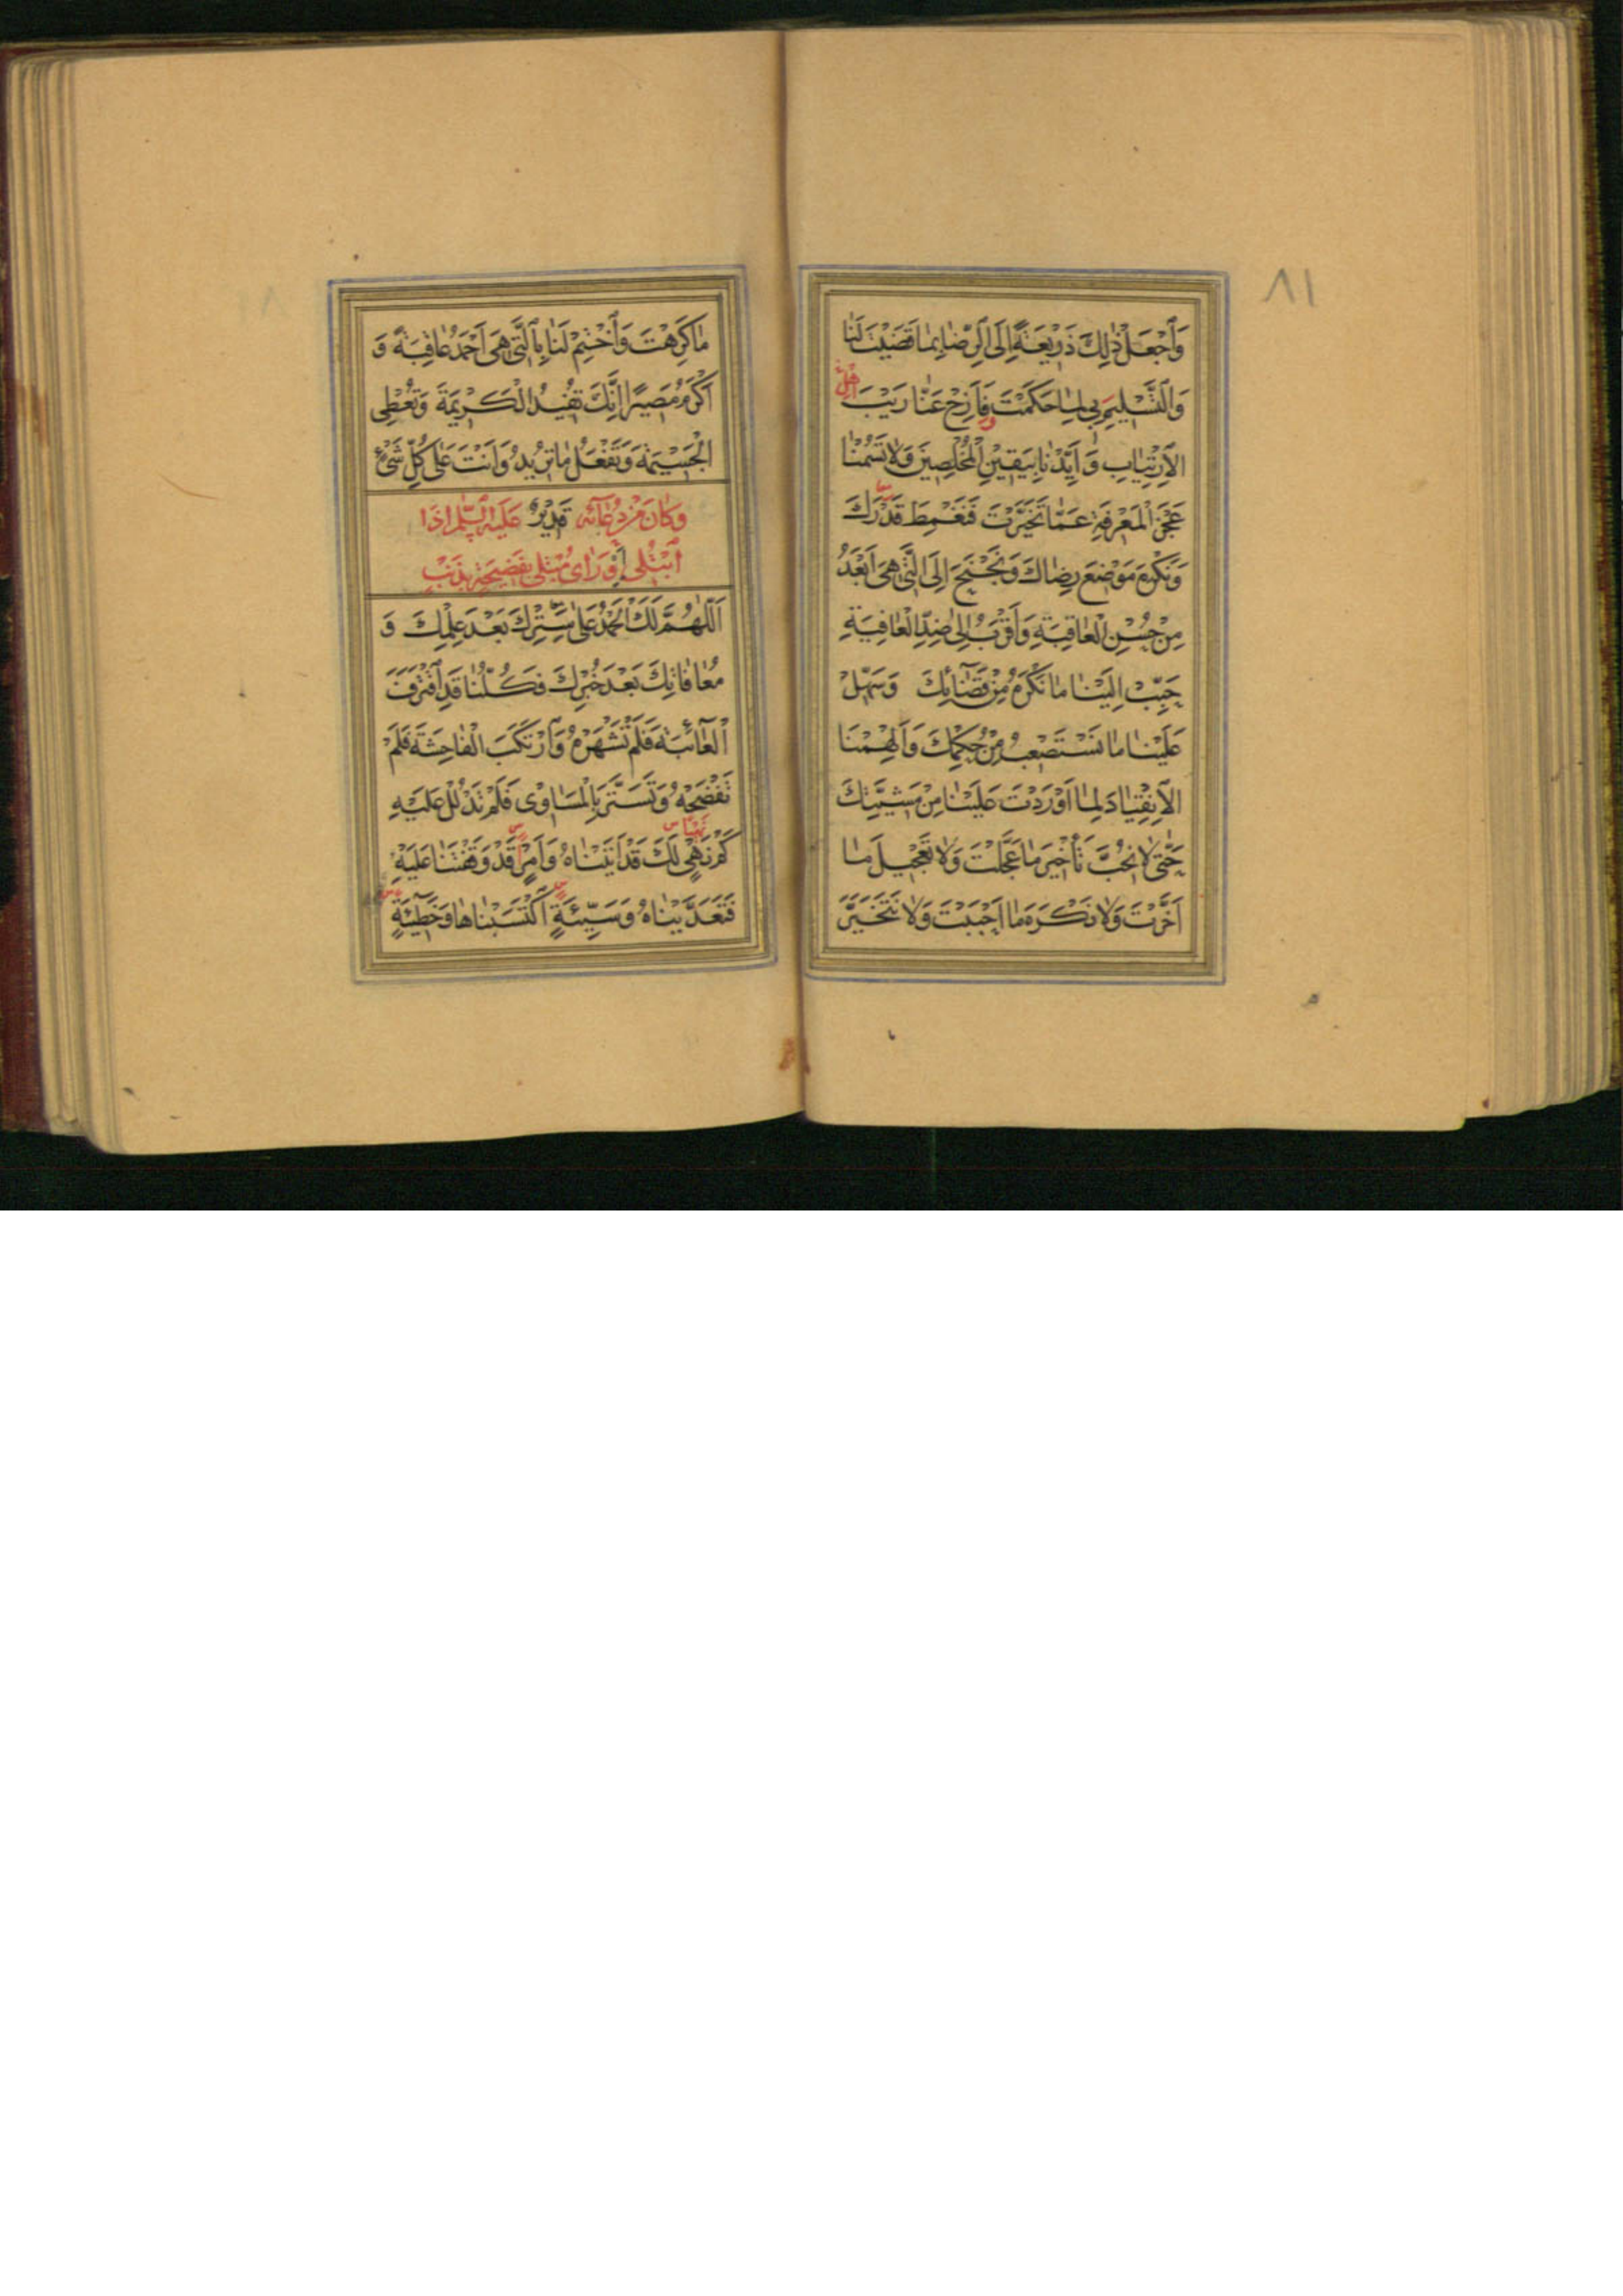 ٨١
وَاجْعَلْ ذٰلِكَ ذَرِيْعَةً إِلَى الرِّضَا بِمَا قَضَيْتَ لَنَا
وَالتَّسْلِيمِ لِمَا حَكَمْتَ فَأَزِحْ عَنَّا رَيْبَ
الْاِرْتِيَابِ وَ أَيِّدْنَا بِيَقِينِ الْمُخْلِصِينَ وَلَا تَسُمْنَا
عَجْزَ الْمَعْرِفَةِ عَمَّا تَخَيَّرْتَ فَنَغْمِطَ قَدْرَكَ
وَنَكْرَهَ مَوْضِعَ رِضَاكَ وَنَجْنَحَ إِلَى الَّتِي هِيَ أَبْعَدُ
مِنْ حُسْنِ الْعَاقِبَةِ وَأَقْرَبُ إِلَى ضِدِّ الْعَافِيَةِ
حَبِّبْ إِلَيْنَا مَا نَكْرَهُ مِنْ قَضَائِكَ وَسَهِّلْ
عَلَيْنَا مَا نَسْتَصْعِبُ مِنْ حُكْمِكَ وَأَلْهِمْنَا
الْاِنْقِيَادَ لِمَا أَوْرَدْتَ عَلَيْنَا مِنْ مَشِيَّتِكَ
حَتّٰى لَا نُحِبَّ تَأْخِيرَ مَا عَجَّلْتَ وَلَا تَعْجِيلَ مَا
أَخَّرْتَ وَلَا نَكْرَهَ مَا أَحْبَبْتَ وَلَا نَتَخَيَّرَ
مَا كَرِهْتَ وَاخْتِمْ لَنَا بِالَّتِي هِيَ أَحْمَدُ عَاقِبَةً وَ
أَكْرَمُ مَصِيرًا إِنَّكَ تُفِيدُ الْكَرِيمَةَ وَتُعْطِي
الْجَسِيمَةَ وَتَفْعَلُ مَا تُرِيدُ وَأَنْتَ عَلٰى كُلِّ شَيْءٍ
وَكَانَ مِنْ دُعَائِهِ قَدِيْرٌ عَلَيْهِ السَّلَمُ إِذَا
ابْتُلِيَ أَوْ رَاٰى مُبْتَلًى بِفَضِيحَةٍ بِذَنْبٍ
اَللّٰهُمَّ لَكَ الْحَمْدُ عَلٰى سِتْرِكَ بَعْدَ عِلْمِكَ وَ
مُعَافَاتِكَ بَعْدَ خُبْرِكَ فَكُلُّنَا قَدِ اقْتَرَفَ
الْعَائِبَةَ فَلَمْ تَشْهَرْهُ وَارْتَكَبَ الْفَاحِشَةَ فَلَمْ
تَفْضَحْهُ وَتَسَتَّرَ بِالْمَسَاوِي فَلَمْ تَدْلُلْ عَلَيْهِ
كَمْ نَهْيٍ لَكَ قَدْ أَتَيْنَاهُ وَأَمْرٍ قَدْ وَقَفْتَنَا عَلَيْهِ
فَتَعَدَّيْنَاهُ وَسَيِّئَةٍ اكْتَسَبْنَاهَا وَخَطِيئَةٍ